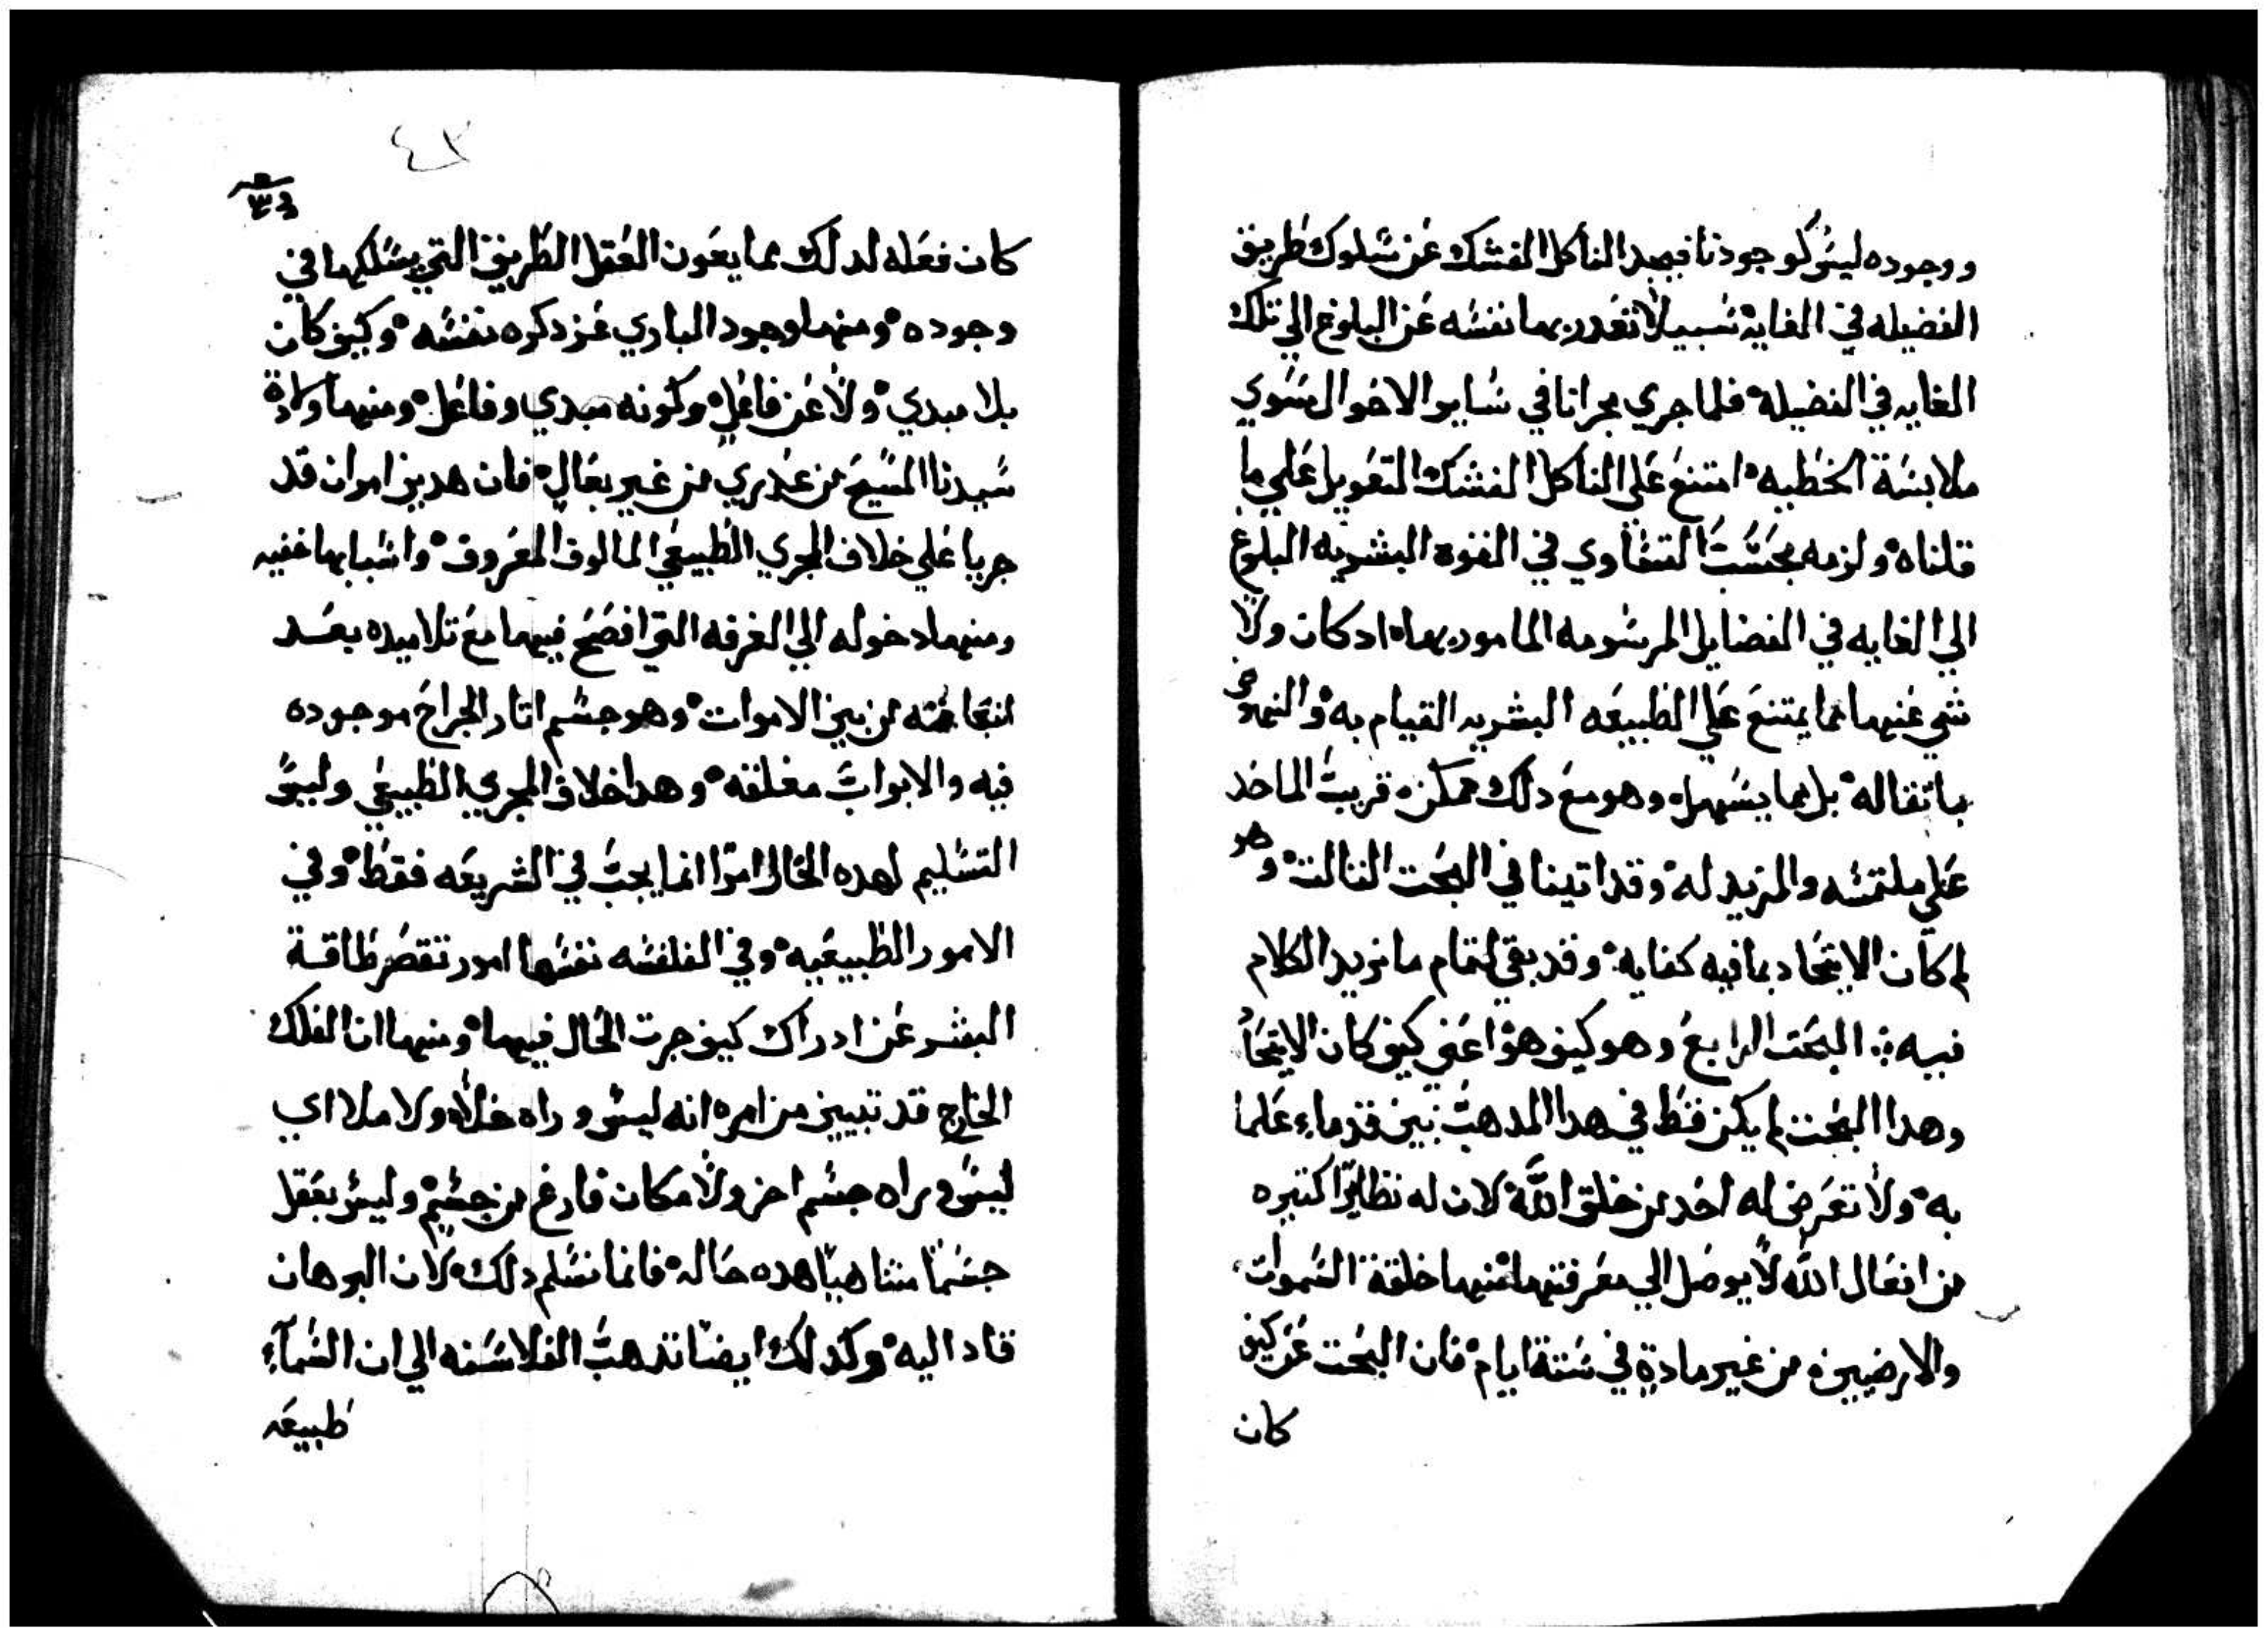 ووجوده ليس كوجودنا فيجد الناكل الفشك عن سلوك طريق
الفضيله في الغاية سبيلاً تقدر بها نفسه عن البلوغ الي تلك
الغايه في الفضيلة فلما جري مجرانا في ساير الاحوال سوي
ملابسة الخطيه امتنع علي الناكل الفشك التعويل علي ما
قلناه ولزمه بحسب التساوي في القوة البشريه البلوغ
الي الغايه في الفضايل المرسومه المامور بها اد كان ولا
شي عنها مما يمتنع علي الطبيعه البشريه القيام به والنهوض
باتقاله بل مما يسهل وهو مع دلك ممكن قريب الماخد
علي ملتمسه والمزيد له وقد اتينا في البحت التالت وهو
لم كان الاتحاد بما فيه كفايه وقد بقي لتمام ما نريد الكلام
فيه البحت الرابع وهو كيف هو اعني كيف كان الاتحاد
وهدا البحت لم يكن قط في هدا المدهب بين قدماء علما
به ولا تعرض له احد من خلق الله لان له نظايراً كتيره
من افعال الله لا يوصل الي معرفتها منها خلقة السموات
والارضيين من غير مادة في ستة ايام فان البحت عن كيف
كان
٤٣
كان فعله لدلك مما يعون العقل الطريق التي يسلكها في
وجوده ومنها وجود الباري عز دكره نفسه وكيف كان
بلا مبدي ولا عن فاعل وكونه مبدي وفاعل ومنها ولادة
سيدنا المسيح من عدري من غير بعال فان هدين امران قد
جريا علي خلاف المجري الطبيعي المالوف المعروف واسبابها خفيه
ومنها دخوله الي الغرفه التي افصح فيها مع تلاميده بعد
انبعاثه من بين الاموات وهو جسم اتار الجراح موجوده
فيه والابواب مغلقه وهدا خلاف المجري الطبيعي وليس
التسليم لهده الحال امرا انما يجب في الشريعه فقط وفي
الامور الطبيعيه وفي الفلفسه نفسها امور تقصر طاقة
البشر عن ادراك كيف جرت الحال فيها ومنها ان الفلك
الخارج قد تبيين من امره انه ليس وراه خلاء ولا ملا اي
ليس وراه جسم اخر ولا مكان فارغ من جسم وليس يعقل
جسماً متناهياً هده حاله فانما نسلم دلك لان البرهان
قاد اليه وكدلك ايضا تدهب الفلاسفه الي ان السماء
طبيعه